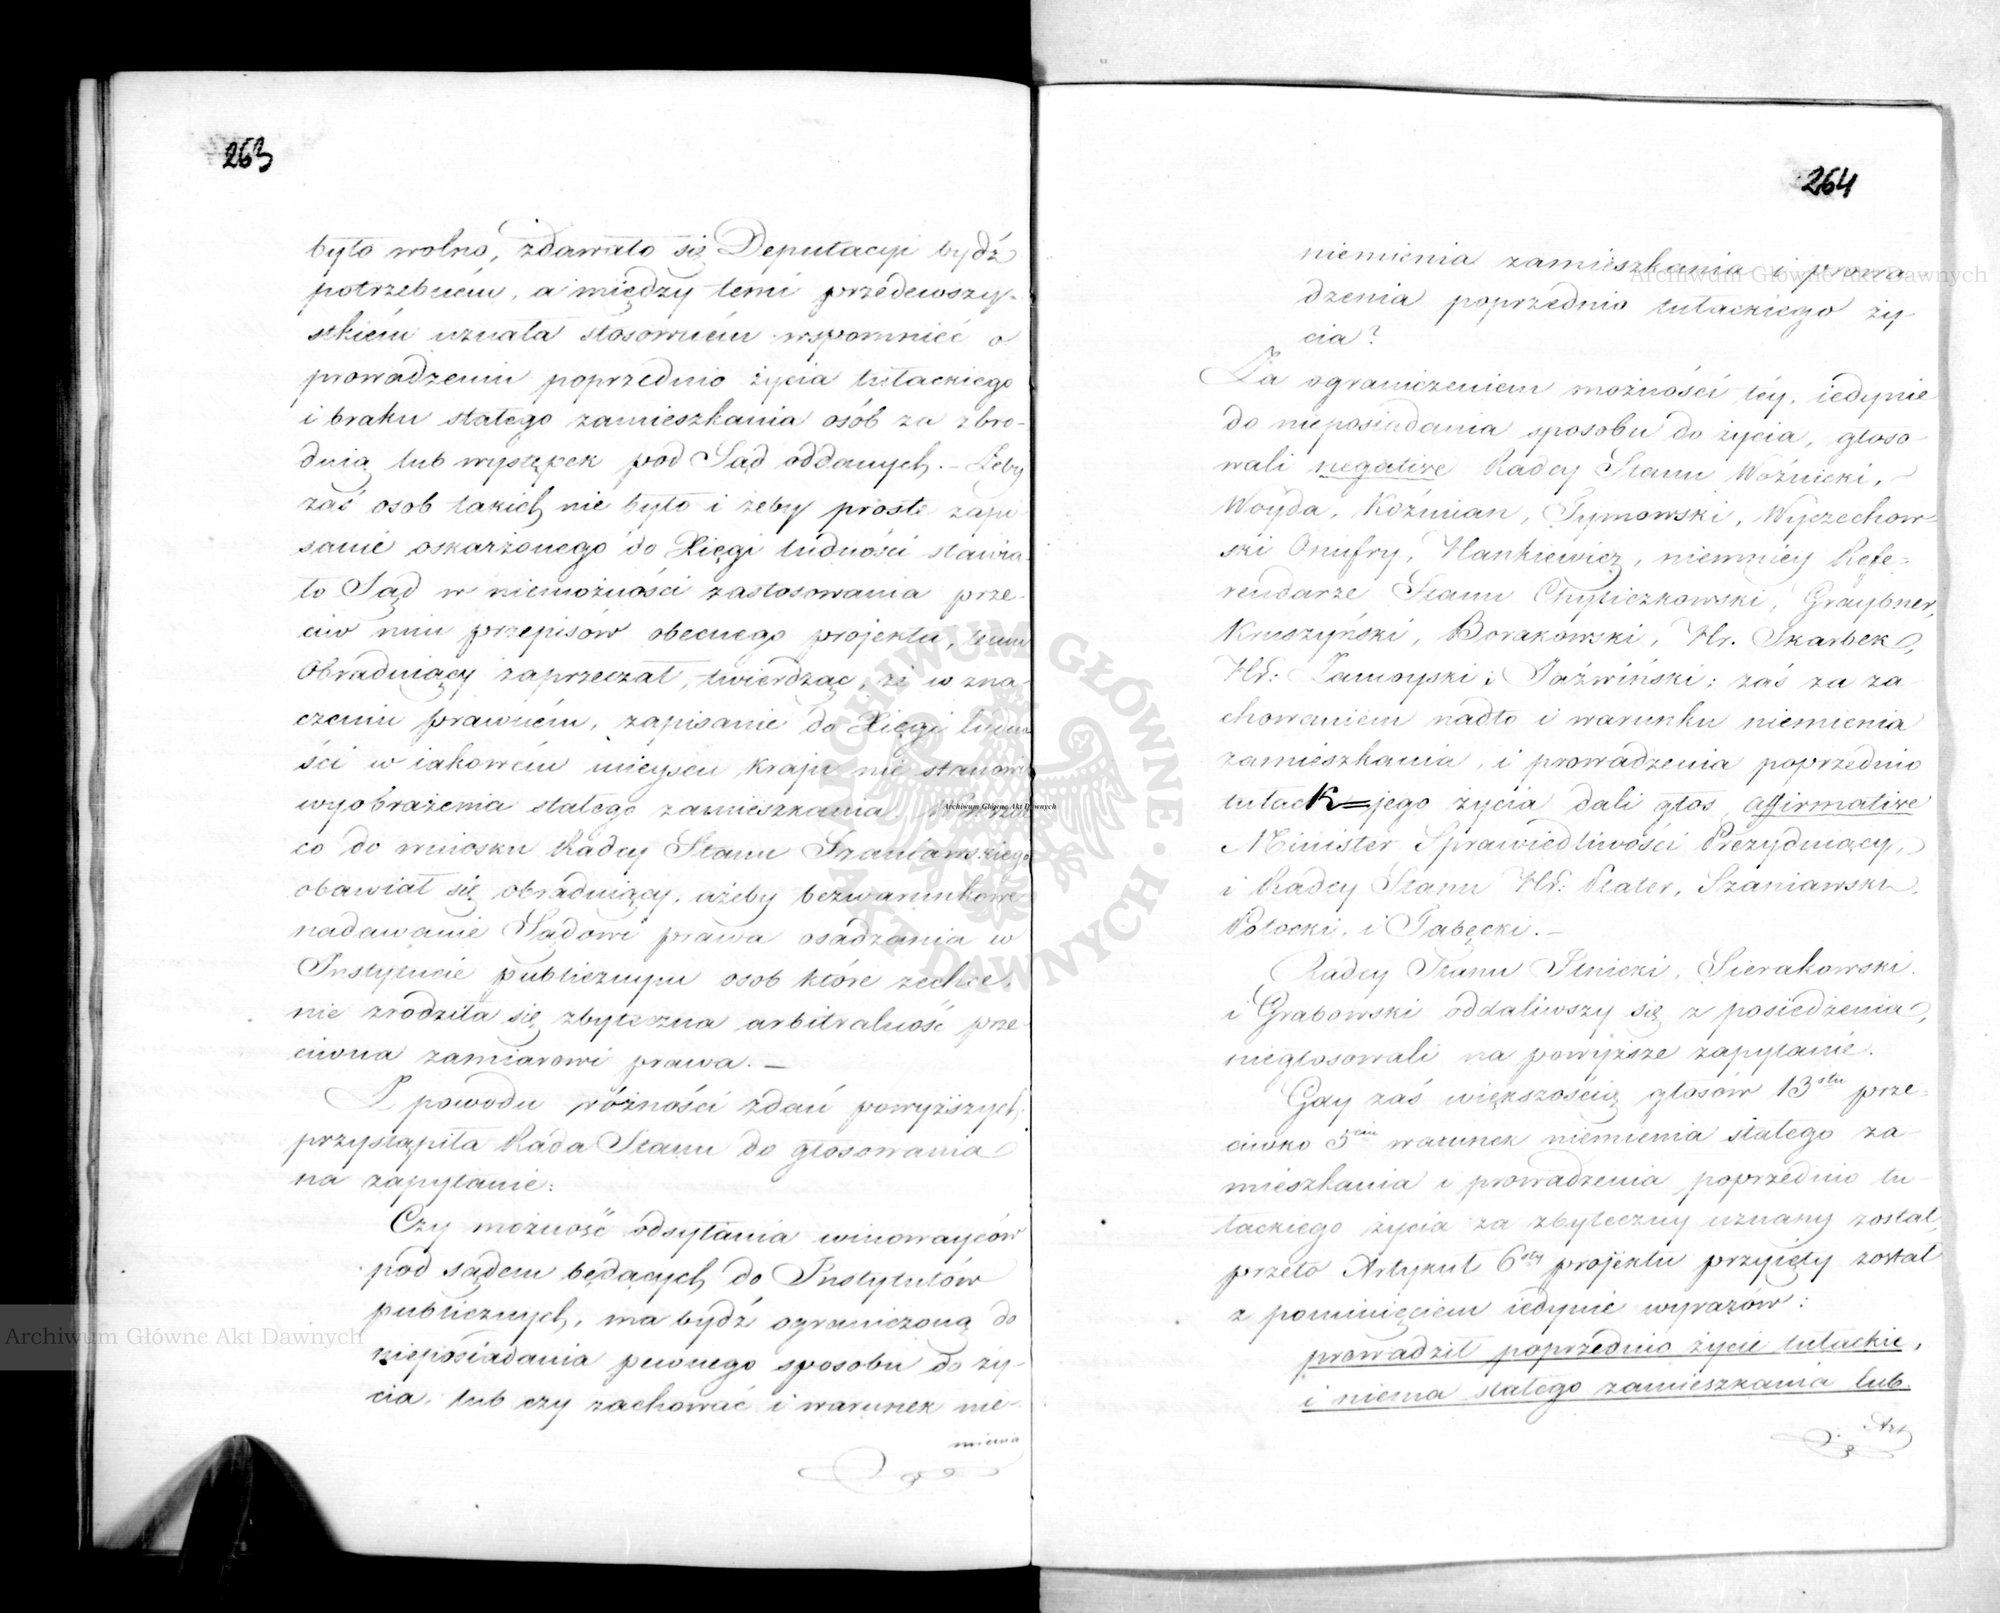 263
było wolno, zdawało się Deputacyi bydź
potrzebném, a między temi przedewszy-
stkiém uznała stosowném wspomnieć o
prowadzeniu poprzednio życia tułackiego
i braku stałego zamieszkania osób za zbro-
dnią lub występek pod Sąd oddanych. – Żeby
zaś osob takich nie było i żeby proste zapi
sanie oskarżonego do Xięgi ludności stawia
ło Sąd w niemożności zastosowania prze-
ciw nim przepisów obecnego projektu, temu
Obraduiący zaprzeczał, twierdząc, że w zna-
czeniu prawném, zapisanie do Xięgi ludno
ści w iakowém mieyscu kraju nie stanowi
wyobrażenia stałego zamieszkania.
co do wniosku Radcy Stanu Szaniawskiego
obawiał się obraduiący, ażeby bezwarunkowe
nadawanie Sądowi prawa osadzania w
Instytucie publicznym osob które zechce,
nie zrodziła się zbyteczna arbitralność prze-
ciwna zamiarowi prawa. –
Z powodu różności zdań powyższych,
przystąpiła Rada Stanu do głosowania
na zapytanie:
Czy możność odsyłania winowayców
pod sądem będących do Instytutów
publicznych, ma bydź ograniczoną do
nieposiadania pewnego sposobu do ży-
cia, lub czy zachować i warunek nie-
mienia
264
niemienia zamieszkania i prowa
dzenia poprzednio tułackiego ży-
cia?
Za ograniczeniem możności téy, iedynie
do nieposiadania sposobu do życia, głoso-
wali negative Radcy Stanu Woźnicki,
Woyda, Koźmian, Tymowski, Wyczechow-
ski Onufry, Hankiewicz, niemniey Refe-
rendarze Stanu Chyliczkowski, Graybner,
Kruszyński, Borakowski, Hr. Skarbek,
Hr: Zamoyski i Jaźwiński; zaś za za-
chowaniem nadto i warunku niemienia
zamieszkania, i prowadzenia poprzednio
tułacK=jego życia dali głos affirmative
Minister Sprawiedliwości Prezyduiący,
i Radcy Stanu Hr: Plater, Szaniawski,
Potocki, i Tabęcki. –
Radcy Stanu Ilnicki, Sierakowski,
i Grabowski oddaliwszy się z posiedzenia,
niegłosowali na powyższe zapytanie.
Gdy zaś większością głosów 13stu prze-
ciwko 5ciu warunek niemienia stałego za-
mieszkania i prowadzenia poprzednio tu-
łackiego życia za zbyteczny uznany został,
przeto Artykuł 6sty projektu przyięty został
z pominięciem iedynie wyrazów:
prowadził poprzednio życie tułackie,
i niema stałego zamieszkania lub.
Art
Archiwum Główne Akt Dawnych
Archiwum Główne Akt Dawnych
Archiwum Główne Akt Dawnych
ARCHIWUM GŁÓWNE AKT DAWNYCH